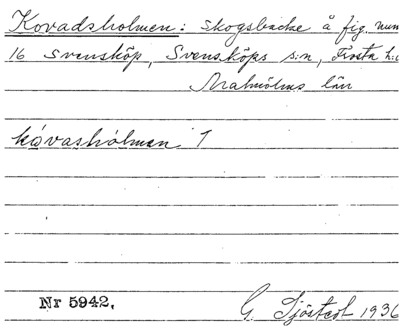 Kovadsholmen: Skogsbacke å fig. num
16 Svensköp, Svensköps s:n, Frosta h:d
Malmöhus län
kóvashólmen 1
Nr 5942.
G. Sjöstedt 1936